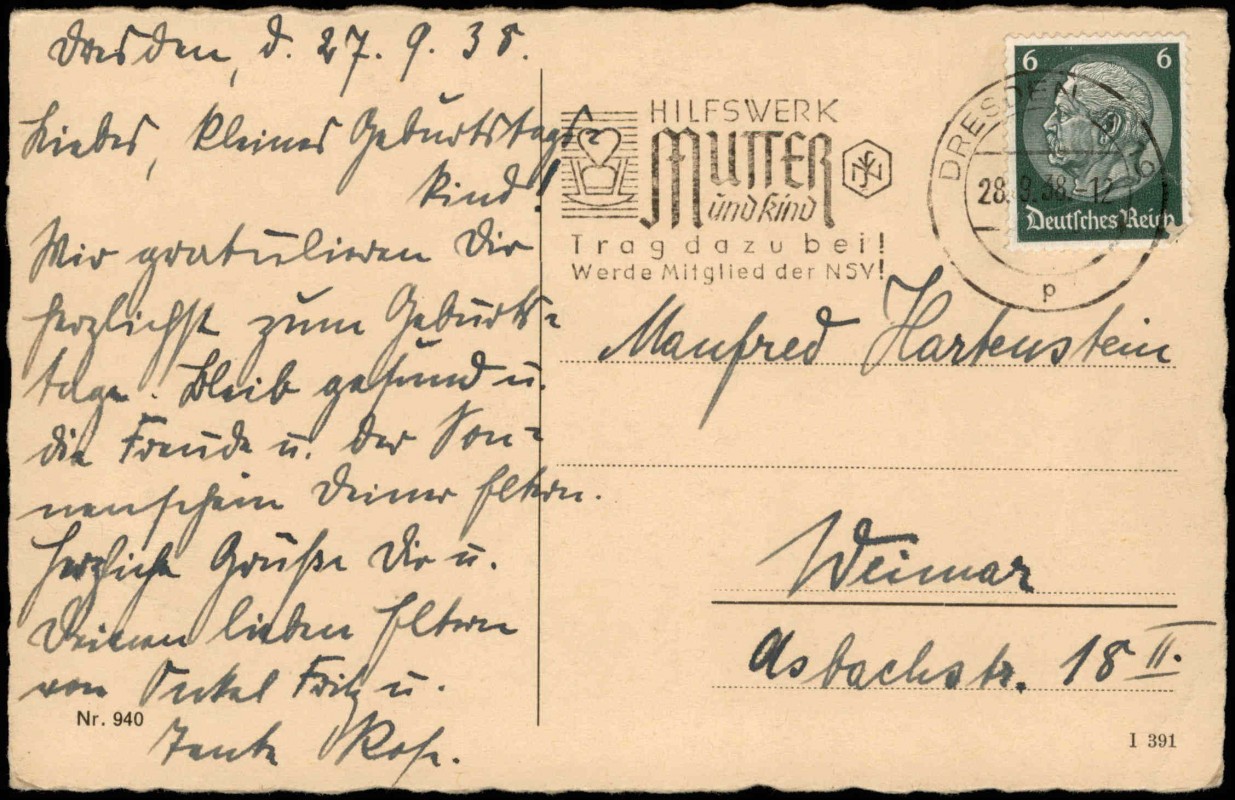 Dresden, d. 27. 9. 38.
Liebes, kleines Geburtstags-
kind!
Wir gratulieren Dir
herzlichst zum Geburts-
tage. Bleib gesund u.
die Freude u. der Son-
nenschein Deiner Eltern.
Herzliche Grüße Dir u.
Deinen lieben Eltern
von Onkel Fritz u.
Tante Rose.
Nr. 940
HILFSWERK
MUTTER
und Kind
Trag dazu bei!
Werde Mitglied der NSV!
DRESDEN
28.9.38.-12
p
6 6
Deutsches Reich
Manfred Hartenstein
Weimar
Asbachstr. 18 II.
I 391